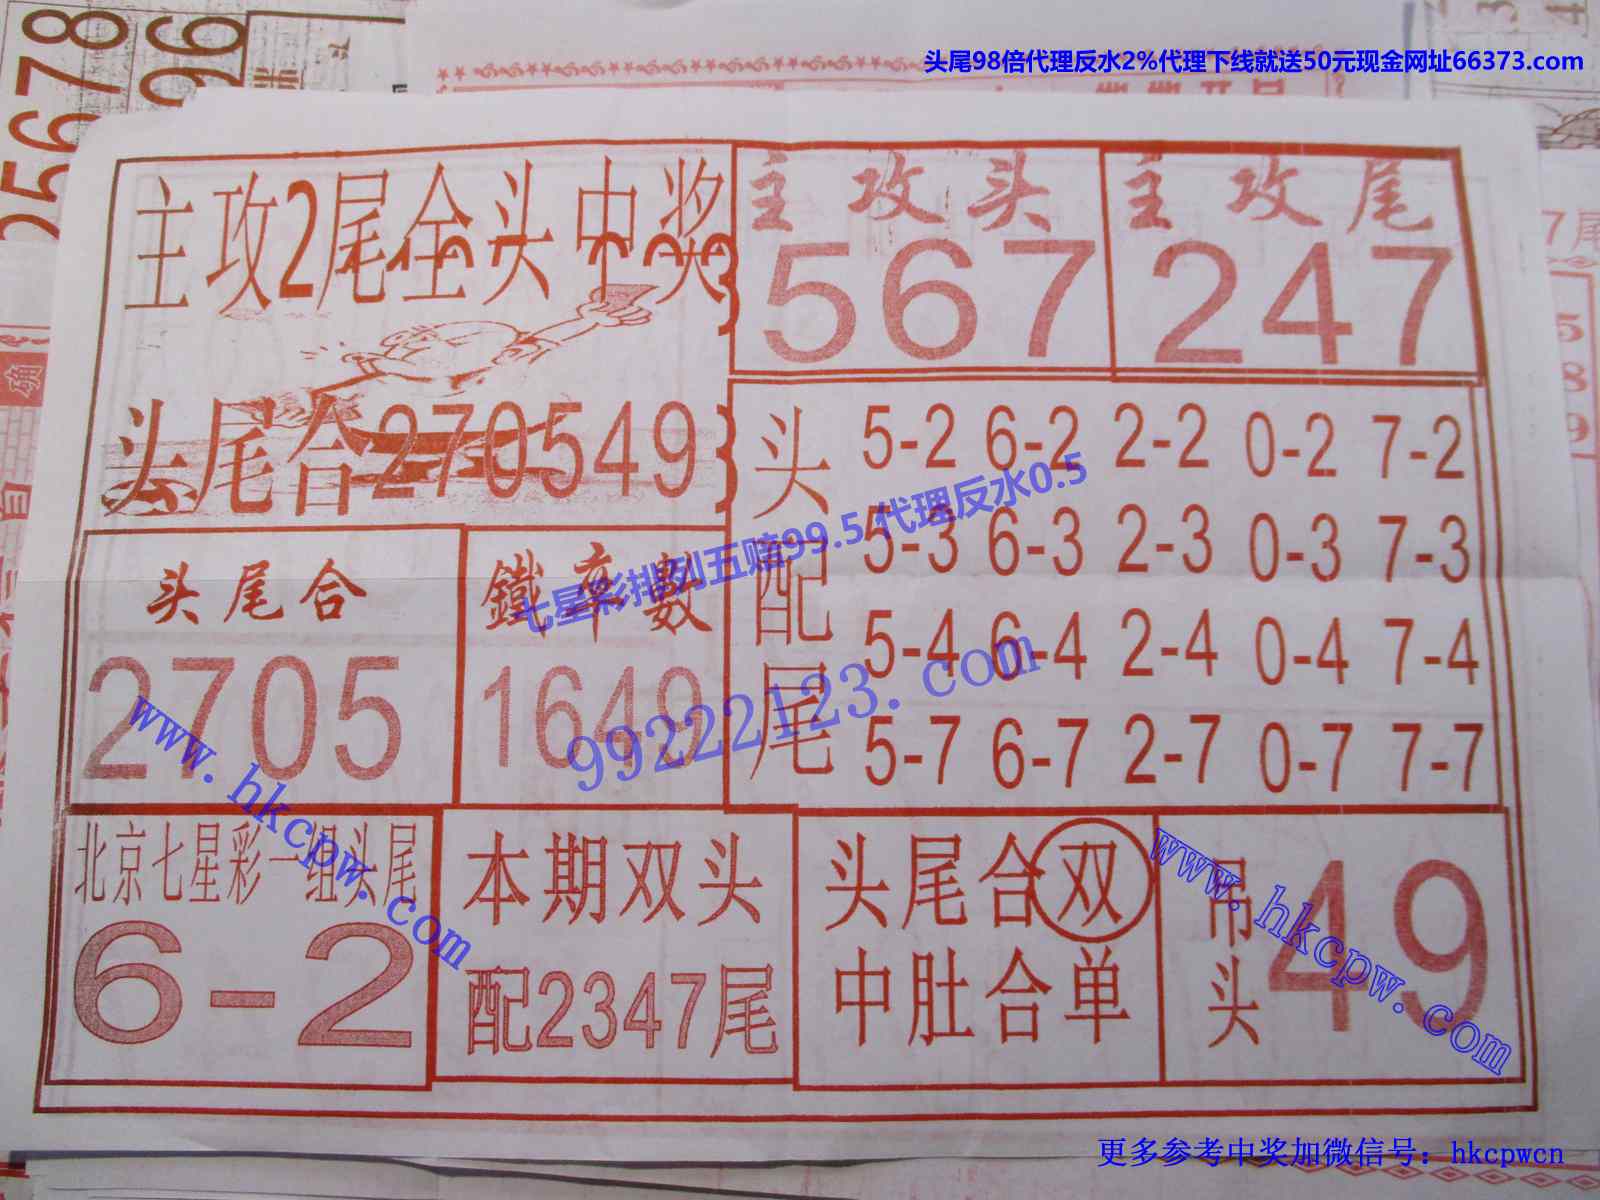 头尾98倍代理反水2%代理下线就送50元现金网址66373.com
25678
96
主攻2尾全头中奖
头尾合270549
主攻头
567
主攻尾
247
头配尾
5-2 6-2 2-2 0-2 7-2
5-3 6-3 2-3 0-3 7-3
5-4 6-4 2-4 0-4 7-4
5-7 6-7 2-7 0-7 7-7
头尾合
2705
鐵率數
1649
七星彩排列五赔99.5 代理反水0.5
99222123.com
www.hkcpw.com
北京七星彩一组头尾
6-2
本期双头
配2347尾
头尾合双
中肚合单
吊头
49
www.hkcpw.com
7尾
5
8
9
更多参考中奖加微信号：hkcpwcn